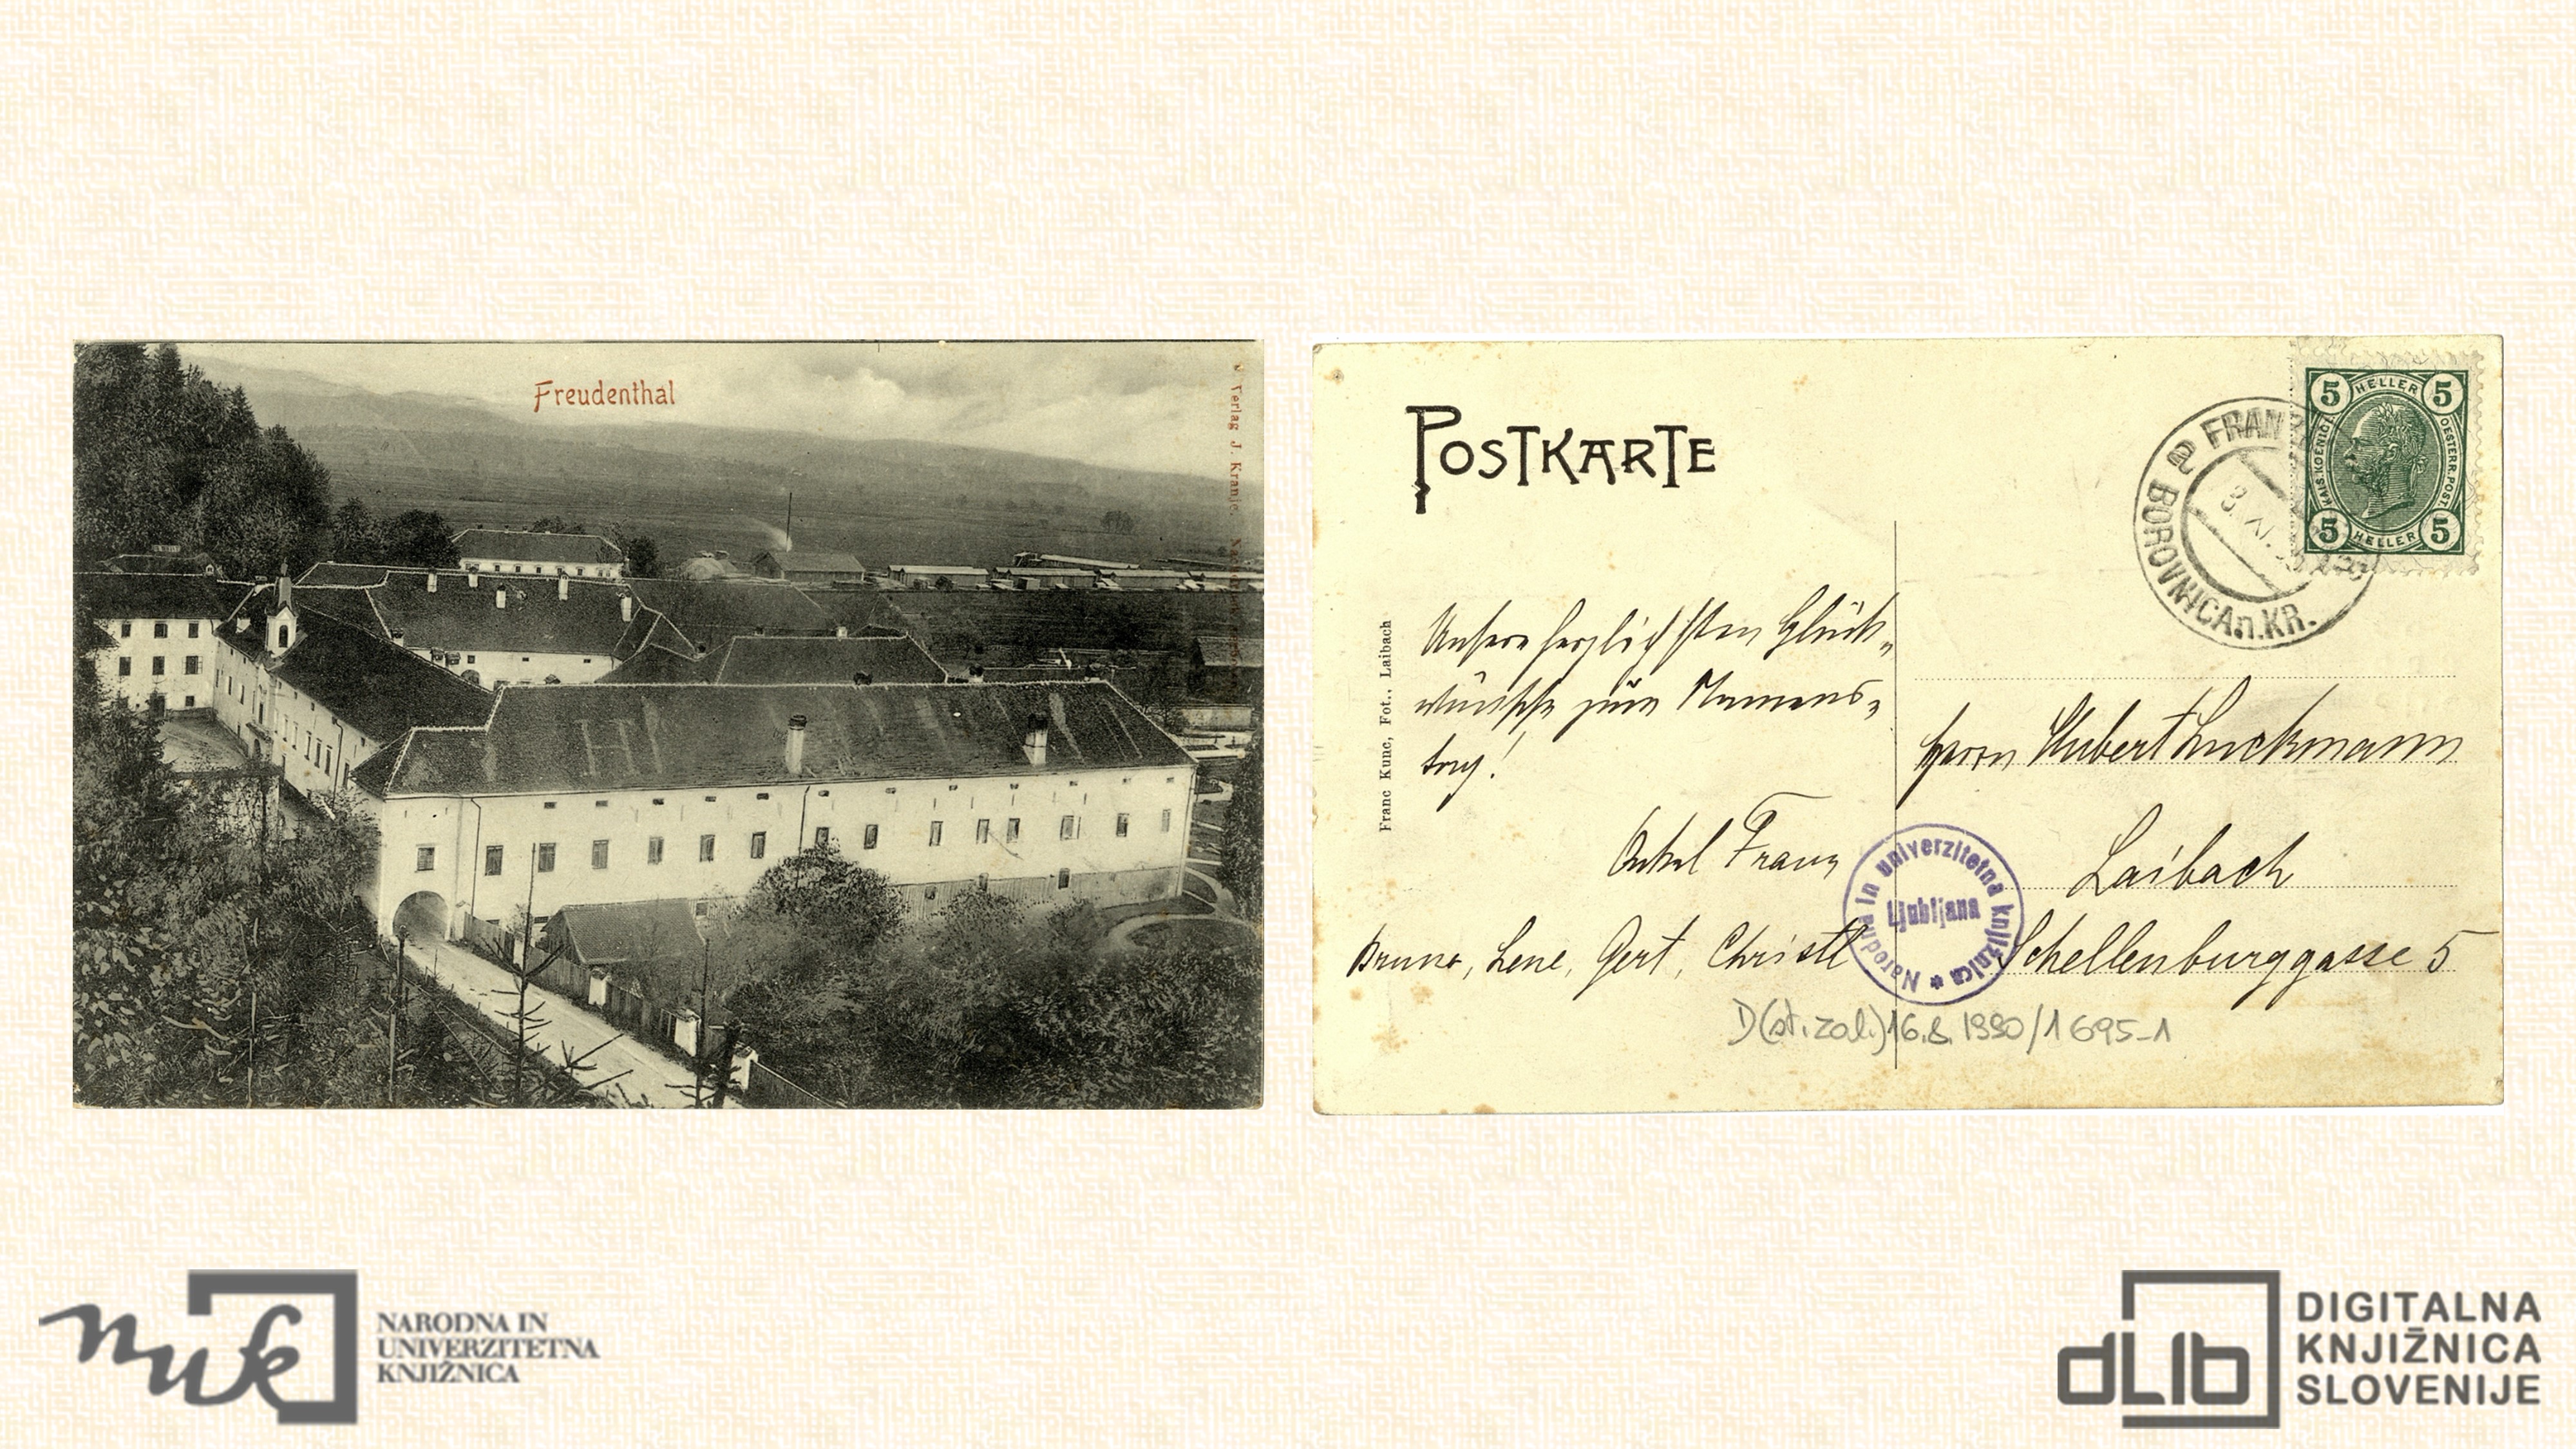 Freudenthal
Verlag J. Kranjc,
POSTKARTE
Franc Kunc, Fot., Laibach
5 HELLER 5
KAIS. KOENIGL.
OESTERR. POST
5 HELLER 5
FRAN
BOROVNICA n. KR.
3. XI.
Unsere herzlichsten Glück-
wünsche zum Namens-
tag!
Onkel Franz
Bruno, Lene, Gert, Christl
Herrn Hubert Luckmann
Laibach
Schellenburggasse 5
Narodna in univerzitetna knjižnica *
Ljubljana
D(st. zal.) 16.8.1990/1695-1
nuk
NARODNA IN
UNIVERZITETNA
KNJIŽNICA
dLib
DIGITALNA
KNJIŽNICA
SLOVENIJE